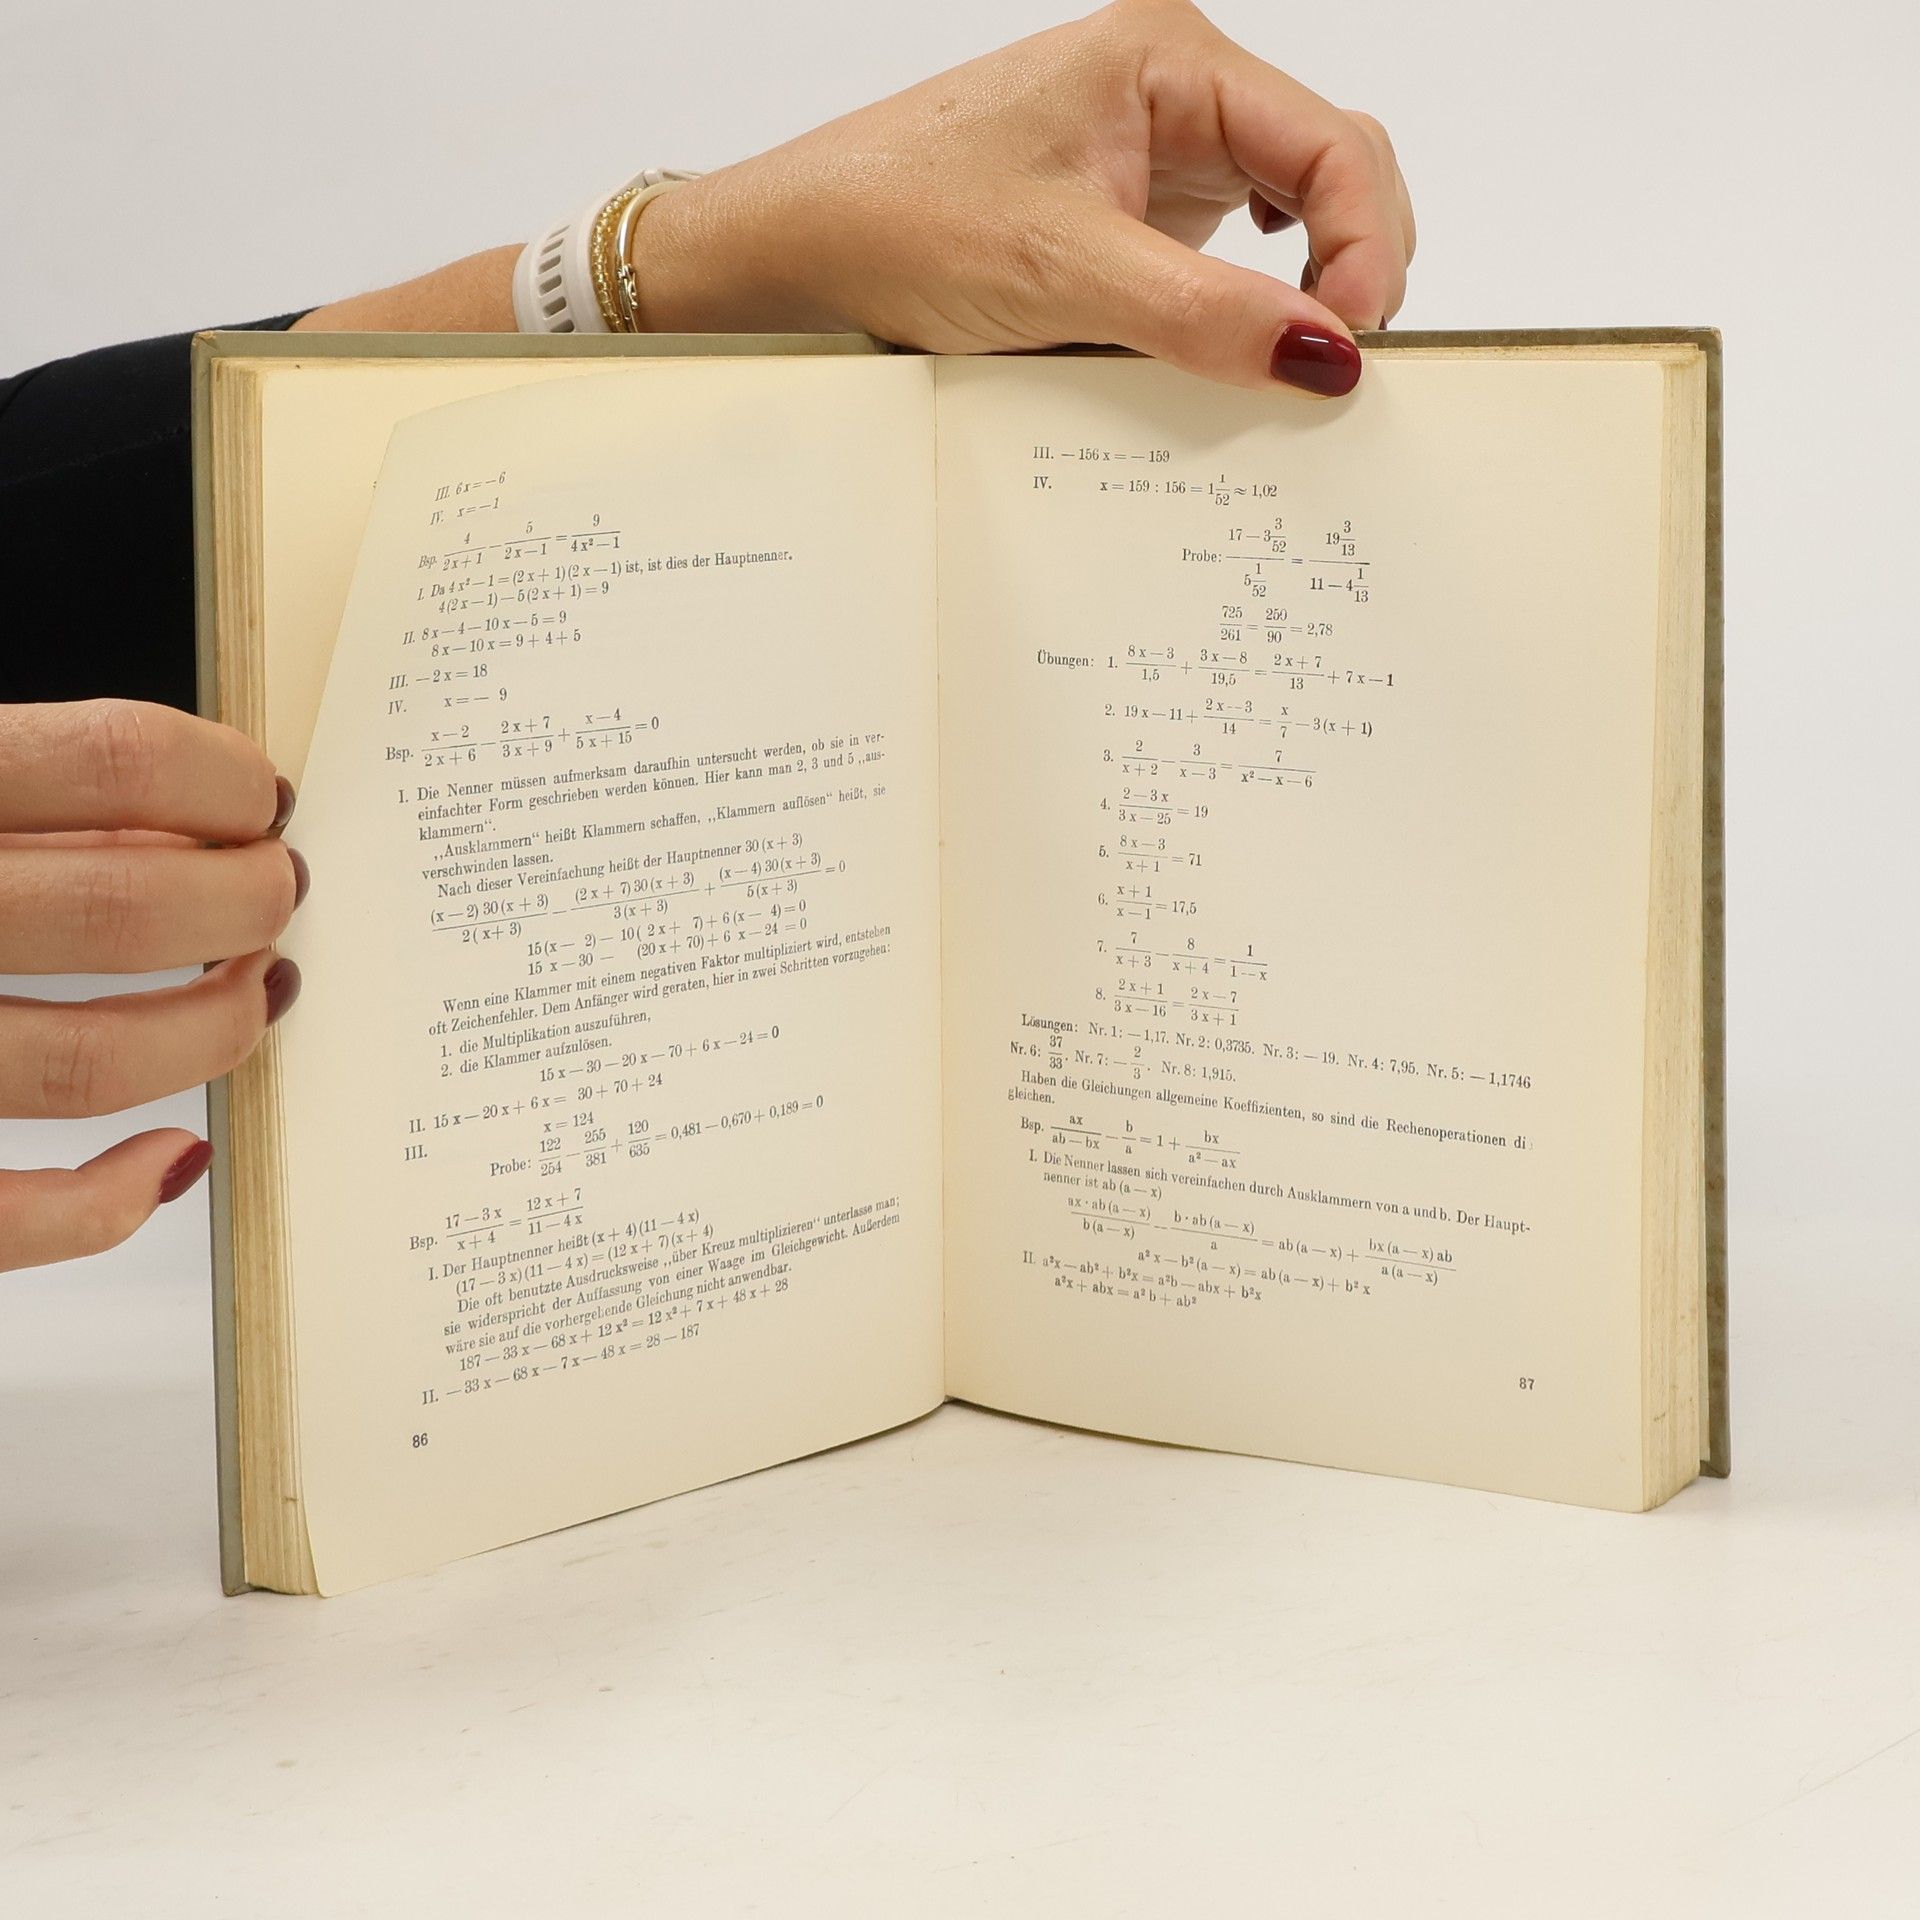 III. 6x = — 6
IV. x = — 1
Bsp. 4/(2x + 1) — 5/(2x — 1) = 9/(4x² — 1)
I. Da 4x² — 1 = (2x + 1)(2x — 1) ist, ist dies der Hauptnenner.
4(2x — 1) — 5(2x + 1) = 9
II. 8x — 4 — 10x — 5 = 9
8x — 10x = 9 + 4 + 5
III. — 2x = 18
IV. x = — 9
Bsp. (x — 2)/(2x + 6) — (2x + 7)/(3x + 9) + (x — 4)/(5x + 15) = 0
I. Die Nenner müssen aufmerksam daraufhin untersucht werden, ob sie in ver-
einfachter Form geschrieben werden können. Hier kann man 2, 3 und 5 ,,aus-
klammern“.
,,Ausklammern“ heißt Klammern schaffen, ,,Klammern auflösen“ heißt, sie
verschwinden lassen.
Nach dieser Vereinfachung heißt der Hauptnenner 30 (x + 3)
(x — 2) 30 (x + 3)/2 (x + 3) — (2x + 7) 30 (x + 3)/3 (x + 3) + (x — 4) 30 (x + 3)/5 (x + 3) = 0
15 (x — 2) — 10 ( 2x + 7) + 6 (x — 4) = 0
15 x — 30 — (20x + 70) + 6 x — 24 = 0
Wenn eine Klammer mit einem negativen Faktor multipliziert wird, entstehen
oft Zeichenfehler. Dem Anfänger wird geraten, hier in zwei Schritten vorzugehen:
1. die Multiplikation auszuführen,
2. die Klammer aufzulösen.
15x — 30 — 20x — 70 + 6x — 24 = 0
II. 15x — 20x + 6x = 30 + 70 + 24
III. x = 124
Probe: 122/254 — 255/381 + 120/635 = 0,481 — 0,670 + 0,189 = 0
Bsp. (17 — 3x)/(x + 4) = (12x + 7)/(11 — 4x)
I. Der Hauptnenner heißt (x + 4) (11 — 4x)
(17 — 3x) (11 — 4x) = (12x + 7) (x + 4)
Die oft benutzte Ausdrucksweise ,,über Kreuz multiplizieren“ unterlasse man;
sie widerspricht der Auffassung von einer Waage im Gleichgewicht. Außerdem
wäre sie auf die vorhergehende Gleichung nicht anwendbar.
187 — 33x — 68x + 12x² = 12x² + 7x + 48x + 28
II. — 33x — 68x — 7x — 48x = 28 — 187
86
III. — 156 x = — 159
IV. x = 159 : 156 = 1 1/52 ≈ 1,02
Probe: (17 — 3 3/52)/(5 1/52) = (19 3/13)/(11 — 4 1/13)
725/261 = 250/90 = 2,78
Übungen: 1. (8x — 3)/1,5 + (3x — 8)/19,5 = (2x + 7)/13 + 7x — 1
2. 19x — 11 + (2x — 3)/14 = x/7 — 3 (x + 1)
3. 2/(x + 2) — 3/(x — 3) = 7/(x² — x — 6)
4. (2 — 3x)/(3x — 25) = 19
5. (8x — 3)/(x + 1) = 71
6. (x + 1)/(x — 1) = 17,5
7. 7/(x + 3) — 8/(x + 4) = 1/(1 — x)
8. (2x + 1)/(3x — 16) = (2x — 7)/(3x + 1)
Lösungen: Nr. 1: — 1,17. Nr. 2: 0,3735. Nr. 3: — 19. Nr. 4: 7,95. Nr. 5: — 1,1746
Nr. 6: 37/33. Nr. 7: — 2/3. Nr. 8: 1,915.
Haben die Gleichungen allgemeine Koeffizienten, so sind die Rechenoperationen di
gleichen.
Bsp. ax/(ab — bx) — b/a = 1 + bx/(a² — ax)
I. Die Nenner lassen sich vereinfachen durch Ausklammern von a und b. Der Haupt-
nenner ist ab (a — x)
ax · ab (a — x)/b (a — x) — b · ab (a — x)/a = ab (a — x) + bx (a — x) ab/a (a — x)
a² x — b² (a — x) = ab (a — x) + b² x
II. a²x — ab² + b²x = a²b — abx + b²x
a²x + abx = a² b + ab²
87